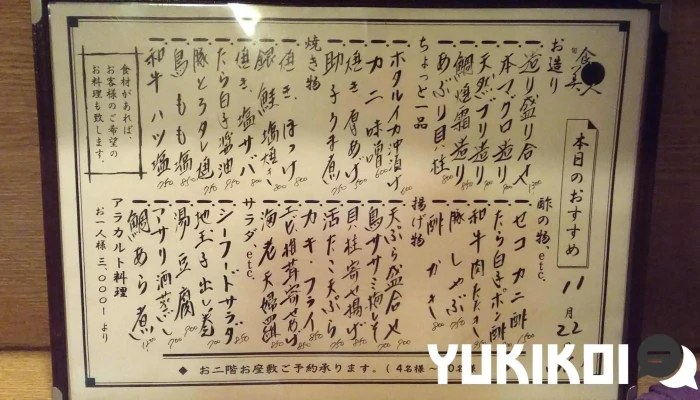 旬 食 美人
本日のおすすめ
11月22
お造り
造り盛り合せ
本マグロ造り
天然ブリ造り
鯛焼霜造り
あぶり貝柱
ちょっと一品
ホタルイカ沖漬け
カニ味噌
焼き厚あげ
助子うま煮
焼き物
焼き、ほっけ
銀鮭塩焼き
焼き、塩サバ
たら白子醤油
豚とろタレ焼
鳥もも塩
和牛ハツ塩
食材があれば、
お客様のご希望の
お料理も致します。
酢の物、etc.
セコカニ酢
たら白子ポン酢
和牛肉たたき
豚しゃぶ
酢がき
揚げ物
天ぷら盛合せ
鳥ササミ梅しそ
貝柱寄せ揚げ
活たこ天ぷら
カキ・フライ
エビ椎茸寄せあげ
海老天婦羅
サラダ、etc.
シーフードサラダ
地玉子出し巻
湯豆腐
アサリ酒蒸し
鯛あら煮
アラカルト料理
お一人様 三、〇〇〇! より
◆ お二階お座敷ご予約承ります。(4名様~
YUKIKOI